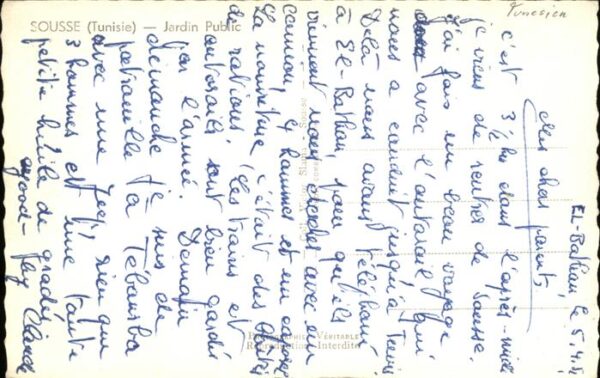 SOUSSE (Tunisie) — Jardin Public
Tunesien
El-Bathan, le 5.4.5
chers parents,
c'est 3 ½ h dans l'après-midi
je viens de rentrer de Sousse.
J'ai fais un beau voyage
avec l'autorail qui
nous a conduit jusqu'à Tunis
De là nous avons téléphoné
à El-Bathan, pour qu'ils
viennent nous chercher avec un
camion, hommes et un
La nourriture c'était des
de rations. Les trains et
autorails sont bien gardé
par l'armée. Demain
dimanche je suis de
patrouille à Tébourba
avec une jeep, rien que
3 hommes et une
petite de grades
good-
Claude
Reproduction Interdite